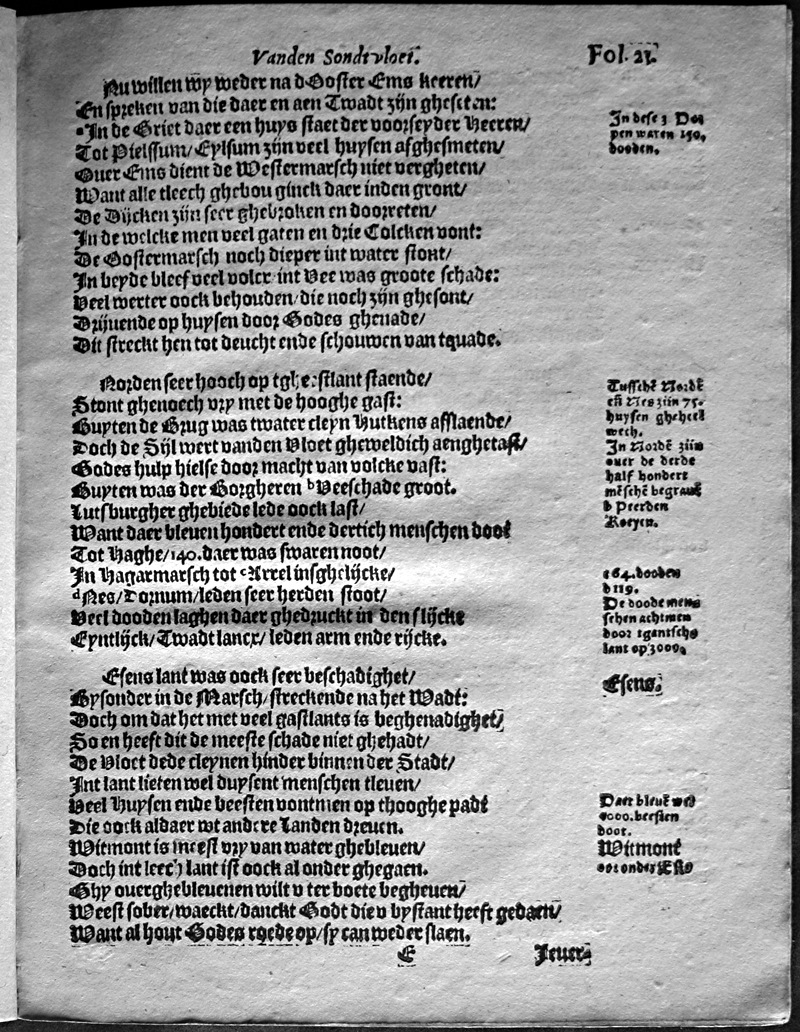 Vanden Sondtvloet.
Fol. 21.
Nu willen wy weder na d'Ooster Ems keeren/
En spreken van die daer en aen Twadt zijn gheseten:
In de Griet daer een huys staet der voorseyder Heeren/
Tot Pielssum/ Eylsum zijn veel huysen afghesmeten/
Ouer Ems dient de Westermarsch niet vergheten/
Want alle tleech ghebou ginck daer inden gront/
De Dijcken zijn seer ghebroken en doorreten/
In de welcke men veel gaten en drie Colcken vont:
De Oostermarsch noch dieper int water stont/
In beyde bleef veel volcx int Vee was groote schade:
Veel werter oock behouden/ die noch zijn ghesont/
Drijuende op huysen door Godes ghenade/
Dit streckt hen tot deucht ende schouwen van tquade.
In dese 3 Dor
pen waren 150,
dooden.
Norden seer hooch op tgheestlant staende/
Stont ghenoech vry met de hooghe gast:
Buyten de Brug was twater cleyn Hutkens afslaende/
Doch de Sijl wert vanden Vloet gheweldich aenghetast/
Godes hulp hielse door macht van volcke vast:
Buyten was der Borgheren b Veeschade groot.
Lutsburgher ghebiede lede oock last/
Want daer bleuen hondert ende dertich menschen doot
Tot Haghe/ 140. daer was swaren noot/
In Hagarmarsch tot c Arrel insghelijcke/
d Nes/ Dornum/ leden seer herden stoot/
Veel dooden laghen daer ghedruckt in den slijcke
Eyntlijck/ Twadt lancx/ leden arm ende rijcke.
Tusschē Nordē
eñ Nes zijn 75.
huysen gheheel
wech.
In Nordē zijn
ouer de derde
half hondert
mēschē begrauē
b Peerden
Koeyen.
c 64. dooden
d 119.
De doode mens
schen achtmen
door tgantsche
lant op 3000,
Esens lant was oock seer beschadighet/
Bysonder in de Marsch/ streckende na het Wadt:
Doch om dat het met veel gastlants is beghenadighet/
So en heeft dit de meeste schade niet ghehadt/
De Vloet dede cleynen hinder binnen der Stadt/
Int lant lieten wel duysent menschen tleuen/
Veel Huysen ende beesten vontmen op thooghe padt
Die oock aldaer wt andere Landen dreuen.
Witmont is meest vry van water ghebleuen/
Doch int leech lant ist oock al onder ghegaen.
Ghy ouerghebleuenen wilt v ter boete begheuen/
Weest sober/ waeckt/ danckt Godt die v bystant heeft gedaen/
Want al hout Godes roede op/ sy can weder slaen.
Esens.
Daer bleuē wel
4000. beesten
doot.
Witmont
E
Jeuer